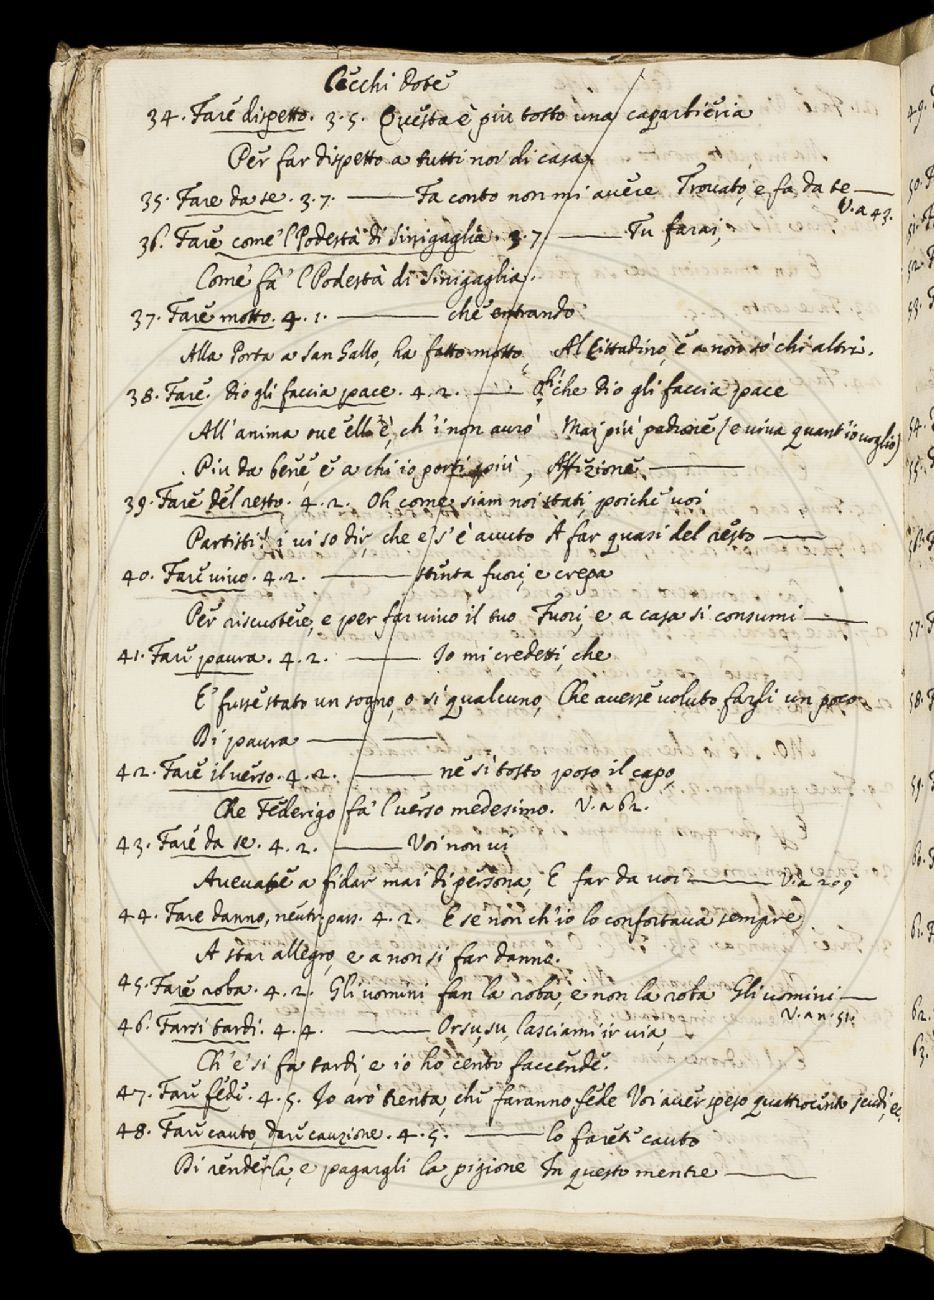 Cecchi Dote
34. Fare dispetto. 3. 5. Questa è piu tosto una caparbieria
Per far dispetto a tutti noi di casa.
35. Fare da se. 3. 7. —— Fa conto non mi avere Trovato, e fa da te ——
V. a 43.
36. Fare come 'l Podestà di Sinigaglia. 3. 7 —— Tu farai,
Come fa 'l Podestà di Sinigaglia.
37. Fare motto. 4. 1. —— che entrando
Alla Porta a San Gallo, ha fatto motto Al Cittadino, e a non sò chi altri.
38. Fare. Dio gli faccia pace. 4. 2. —— che Dio gli faccia pace
All' anima ove ell' è, ch' i non avrò Mai più padrone (e viva quant' io voglio)
Piu da bene, e a chi io porti più, Affizione ——
39. Fare del resto. 4. 2. Oh come siam noi stati, poichè voi
Partisti! i vi so dir che e' s' è avuto A far quasi del resto ——
40. Fare vivo. 4. 2. —— stenta fuori, e crepa
Per riscuotere, e per far vivo il tuo Fuori, e a casa si consumi ——
41. Fare paura. 4. 2. —— Io mi credetti, che
E' fusse stato un sogno, o sì qualcuno, Che avesse voluto fargli un poco
Di paura ——
42. Fare il verso. 4. 2. —— nè sì tosto poso il capo,
Che Federigo fa 'l verso medesimo. V. a 62.
43. Fare da se. 4. 2. —— Voi non vi
Avevate a fidar mai di persona, E far da voi —— V. a 209
44. Fare danno, neutr. pass. 4. 2. E se non ch' io lo confortava sempre
A star allegro, e a non si far danno.
45. Fare roba. 4. 2. Gli uomini fan la roba, e non la roba Gli uomini ——
V. a n. 51.
46. Farsi tardi. 4. 4. —— Orsù, su, lasciami ir via,
Ch' e' si fa tardi, e io hò cento faccende.
47. Fare fede. 4. 5. Io arò trenta, che faranno fede Voi aver speso quattrocento scudi, ec.
48. Fare cauto, dare cauzione. 4. 5. —— lo farete cauto
Di renderla, e pagargli la pigione In questo mentre ——